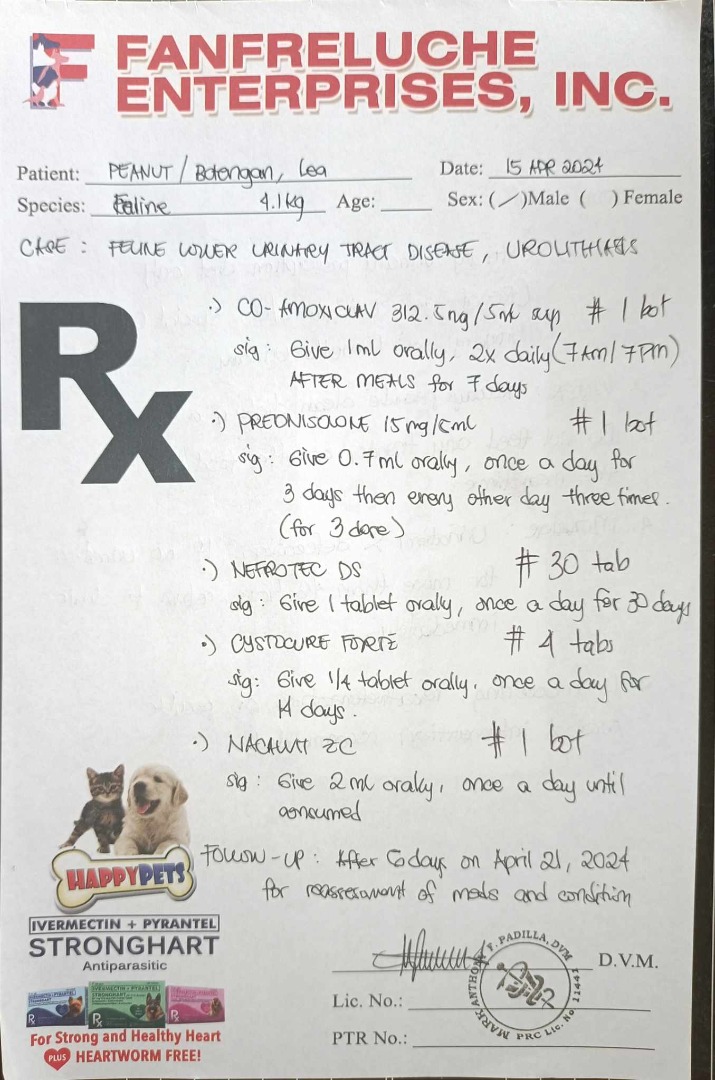 FANFRELUCHE
ENTERPRISES, INC.
Patient: PEANUT / Botengan, Lea Date: 15 APR 2024
Species: Feline 4.1kg Age: Sex: (/)Male ( ) Female
CASE : FELINE LOWER URINARY TRACT DISEASE, UROLITHIASIS
Rx
·) CO-AMOXICLAV 312.5mg/5ml sup # 1 bot
sig : Give 1ml orally, 2x daily (7AM/7PM)
AFTER MEALS for 7 days
·) PREDNISOLONE 15mg/5ml # 1 bot
sig : Give 0.7ml orally, once a day for
3 days then every other day three times.
(for 3 dose)
·) NEFROTEC DS # 30 tab
sig : Give 1 tablet orally, once a day for 30 days
·) CYSTOCURE FORTE # 4 tabs
sig : Give 1/4 tablet orally, once a day for
14 days.
·) ZC # 1 bot
sig : Give 2 ml orally, once a day until
consumed
FOLLOW-UP : After 6 days on April 21, 2024
for reassessment of meds and condition
HAPPYPETS
IVERMECTIN + PYRANTEL
STRONGHART
Antiparasitic
For Strong and Healthy Heart
PLUS HEARTWORM FREE!
D.V.M.
Lic. No.:
PTR No.:
MARK ANTHONY F. PADILLA, DVM
PRC Lic. No. 11441